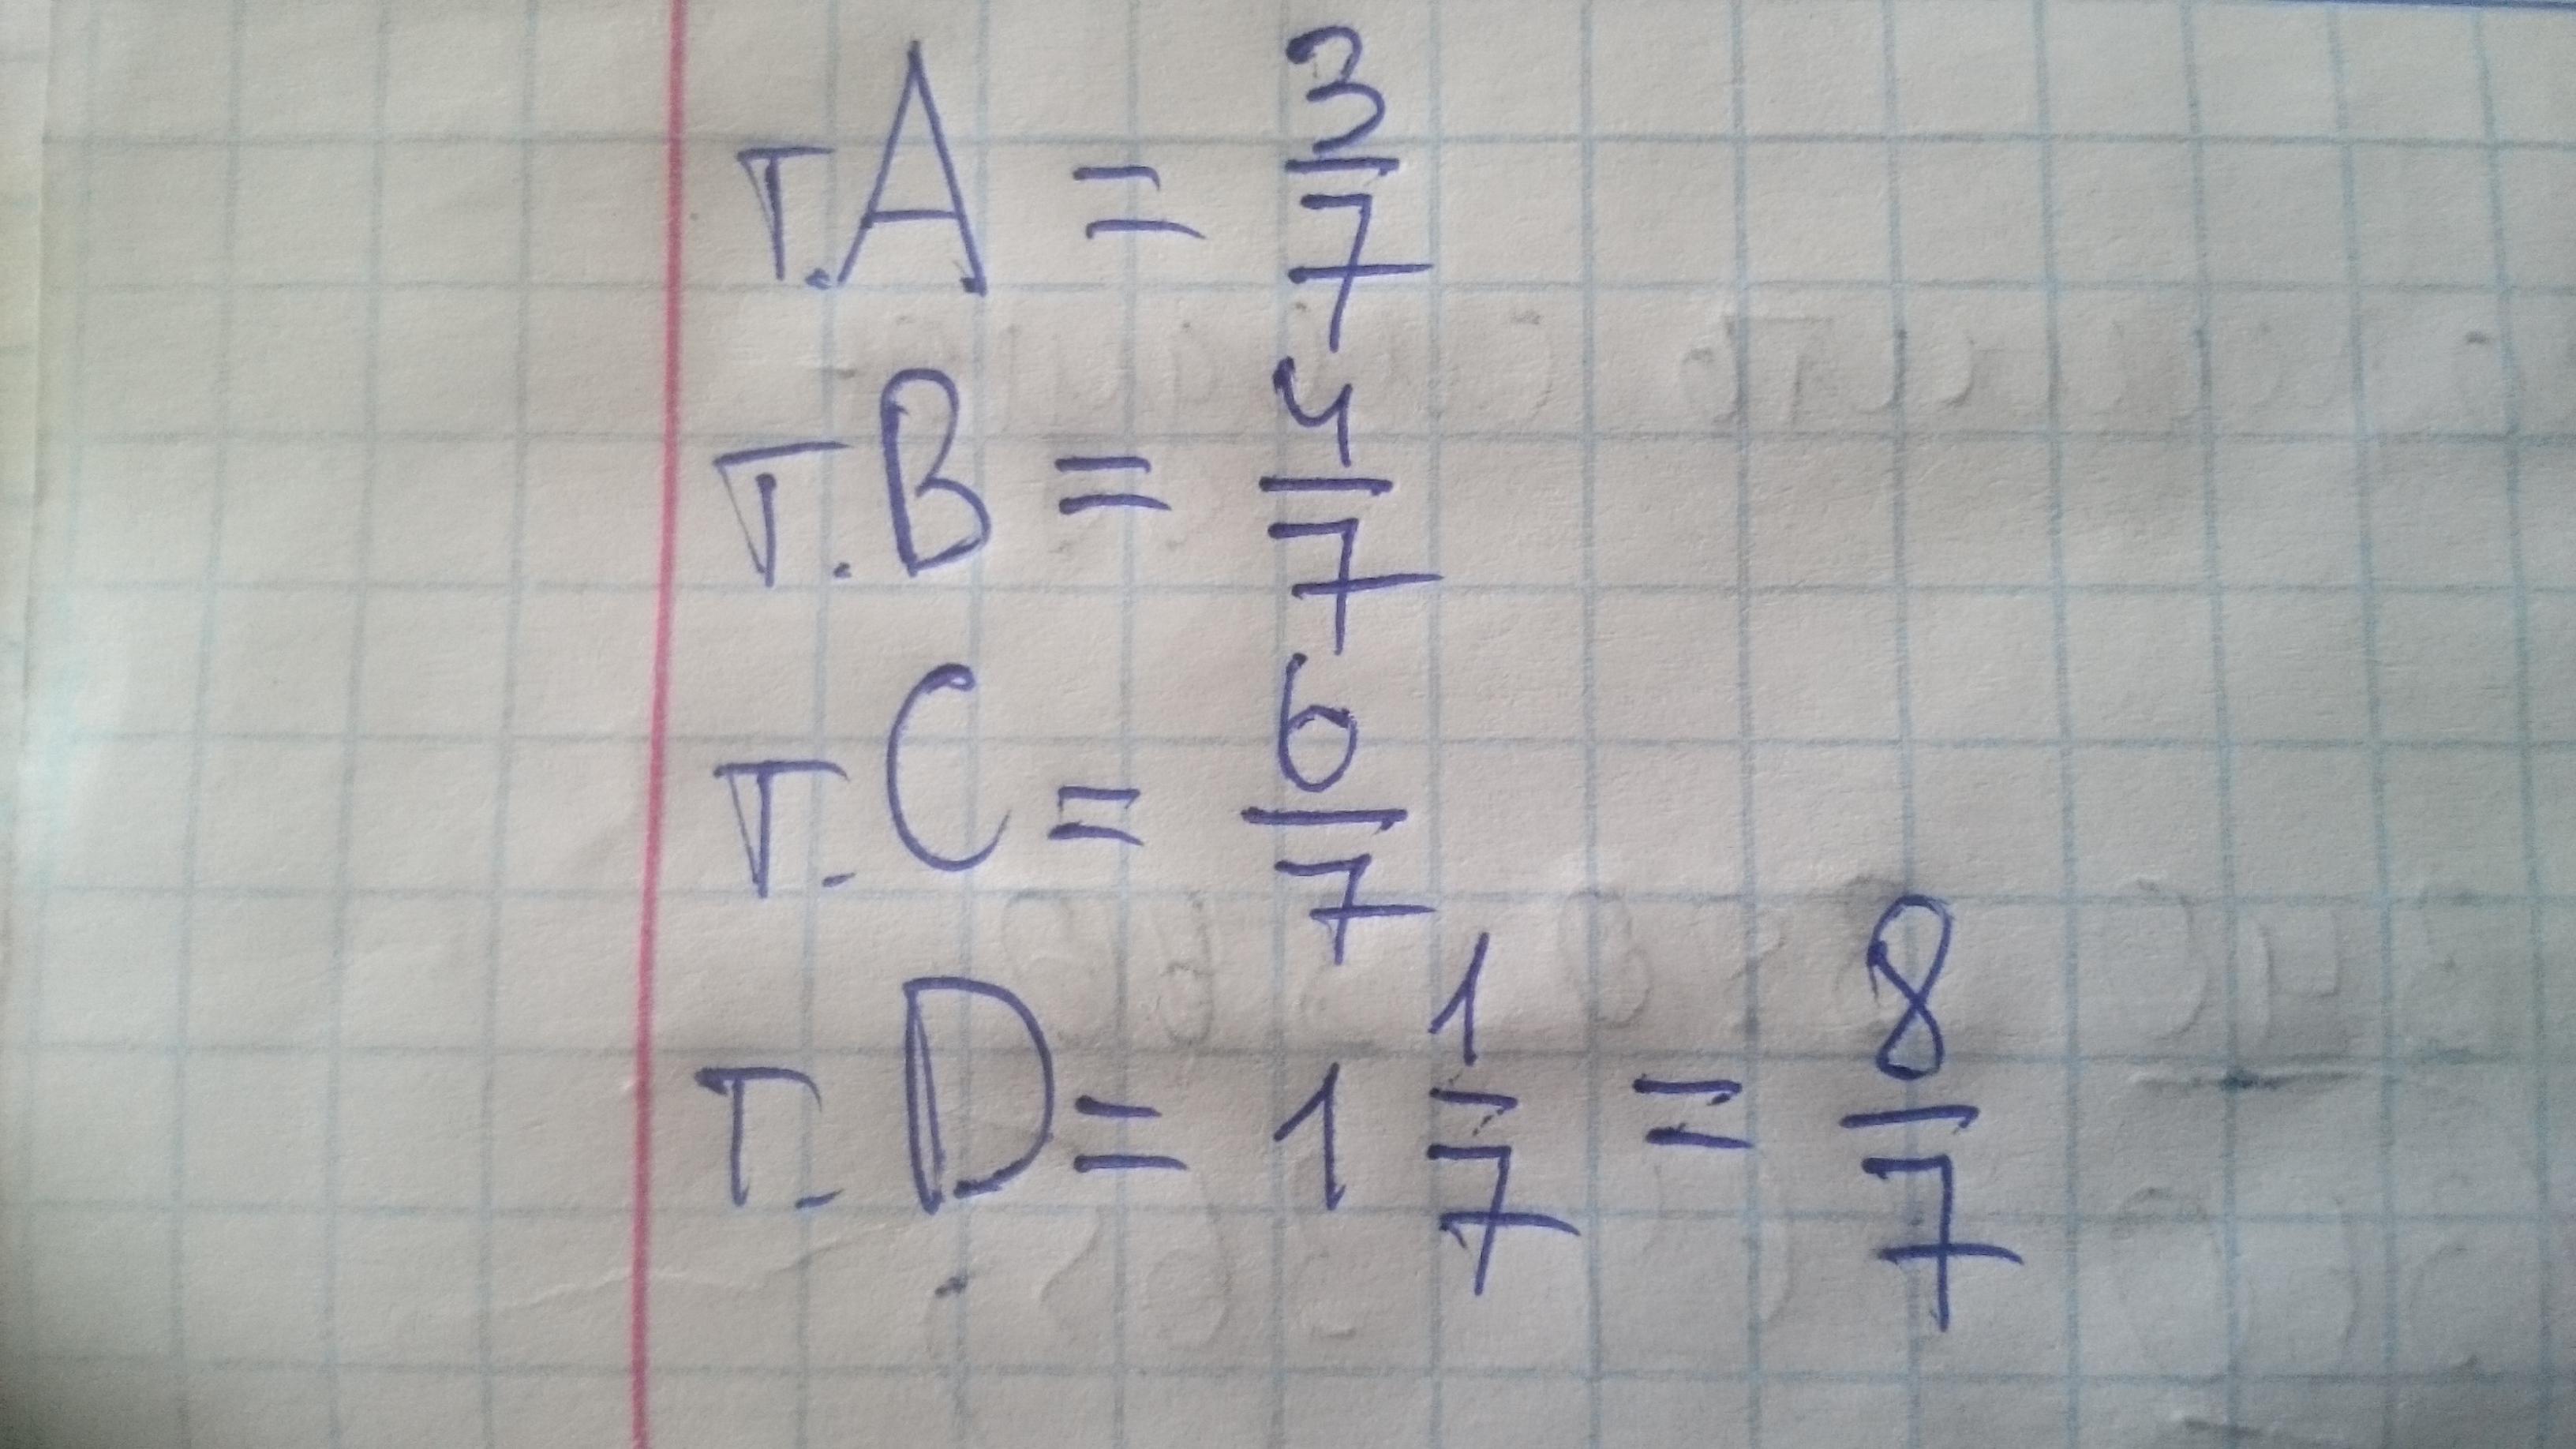 т.A = 3/7
т.B = 4/7
т.C = 6/7
т.D = 1 1/7 = 8/7